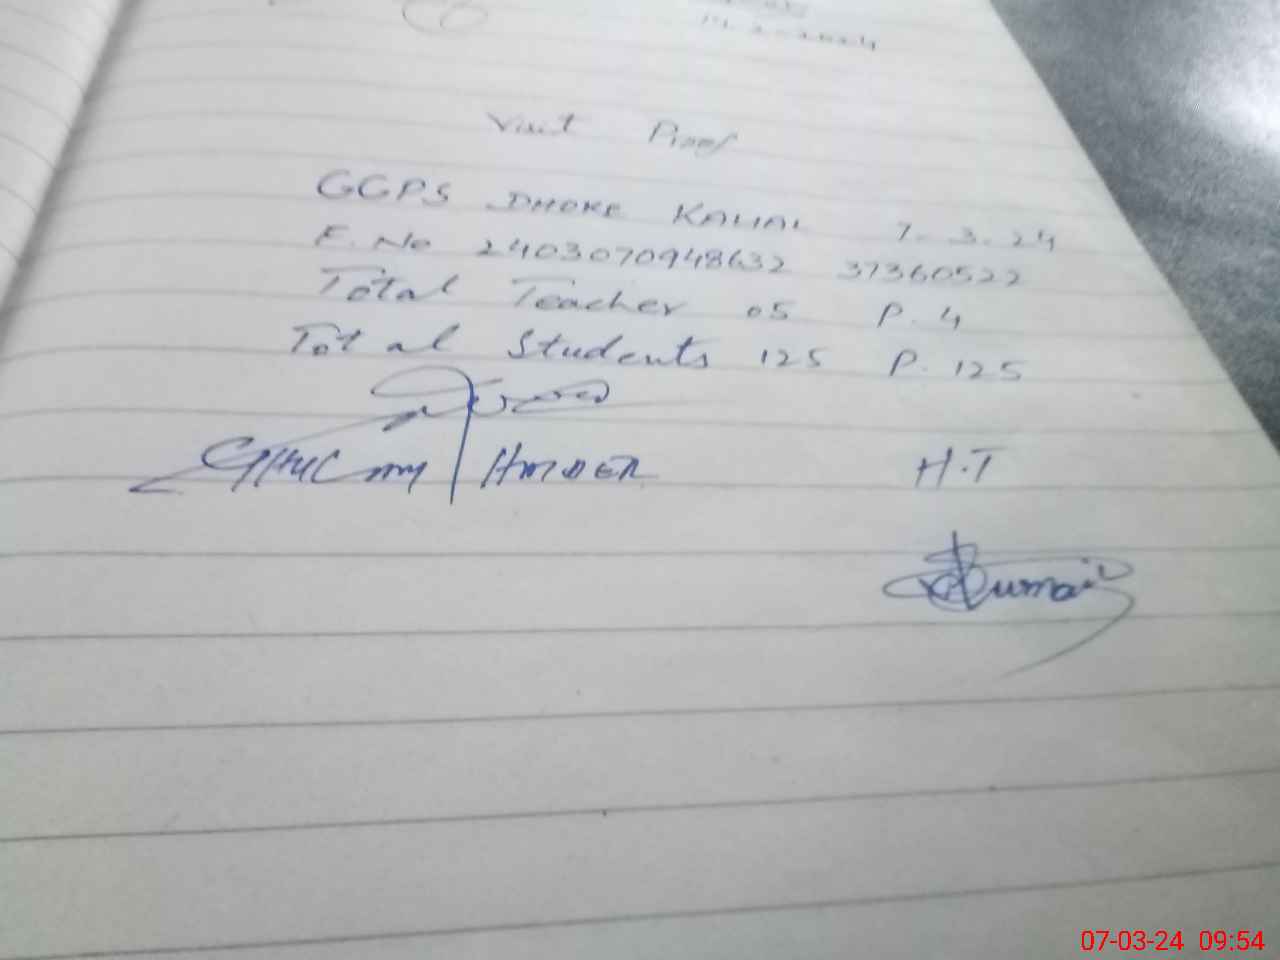 14.2.2024
Visit Proof
GGPS DHOKE 7.3.24
E.No 2403070948632 37360522
Total Teacher 05 P.4
Total Students 125 P.125
H.T
07-03-24 09:54